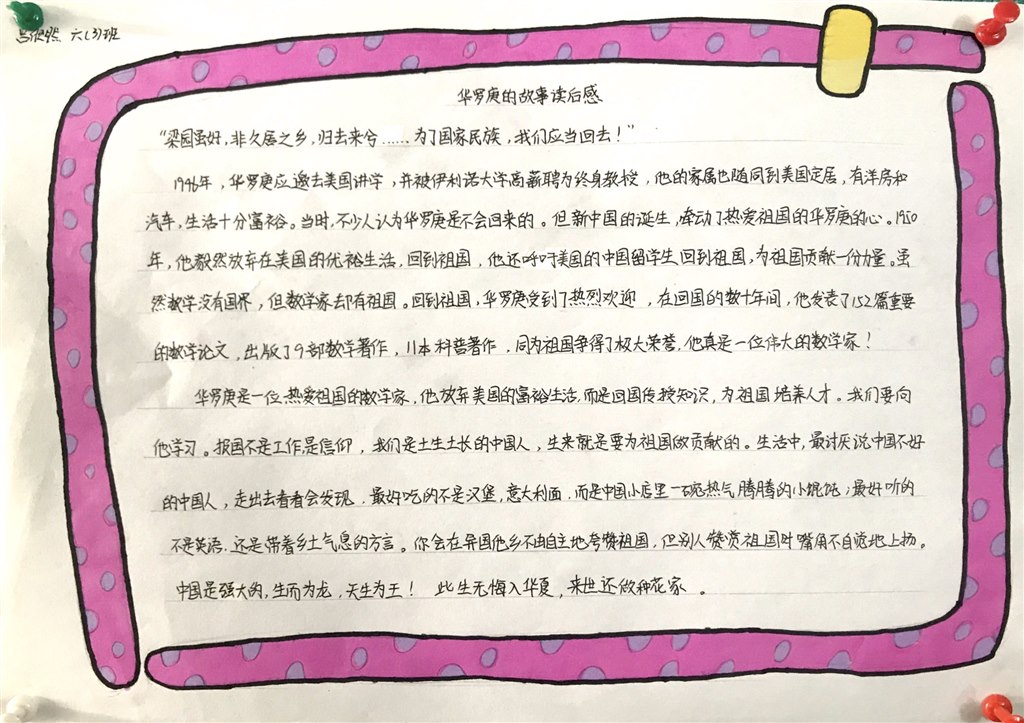 吕欣然 六(3)班
华罗庚的故事读后感
“梁园虽好,非久居之乡,归去来兮……为了国家民族,我们应当回去!”
1946年,华罗庚应邀去美国讲学,并被伊利诺大学高薪聘为终身教授,他的家属也随同到美国定居,有洋房和
汽车,生活十分富裕。当时,不少人认为华罗庚是不会回来的。但新中国的诞生,牵动了热爱祖国的华罗庚的心。1950
年,他毅然放弃在美国的优裕生活,回到祖国,他还呼吁美国的中国留学生回到祖国,为祖国贡献一份力量。虽
然数学没有国界,但数学家却有祖国。回到祖国,华罗庚受到了热烈欢迎,在回国的数十年间,他发表了152篇重要
的数学论文,出版了9部数学著作,11本科普著作,同为祖国争得了极大荣誉,他真是一位伟大的数学家!
华罗庚是一位热爱祖国的数学家,他放弃美国的富裕生活,而是回国传授知识,为祖国培养人才。我们要向
他学习。报国不是工作,是信仰,我们是土生土长的中国人,生来就是要为祖国做贡献的。生活中,最讨厌说中国不好
的中国人,走出去看看会发现,最好吃的不是汉堡,意大利面,而是中国小店里一碗热气腾腾的小馄饨;最好听的
不是英语,还是带着乡土气息的方言。你会在异国他乡不由自主地夸赞祖国,但别人赞赏祖国时嘴角不自觉地上扬。
中国是强大的,生而为龙,天生为王! 此生无悔入华夏,来世还做种花家。